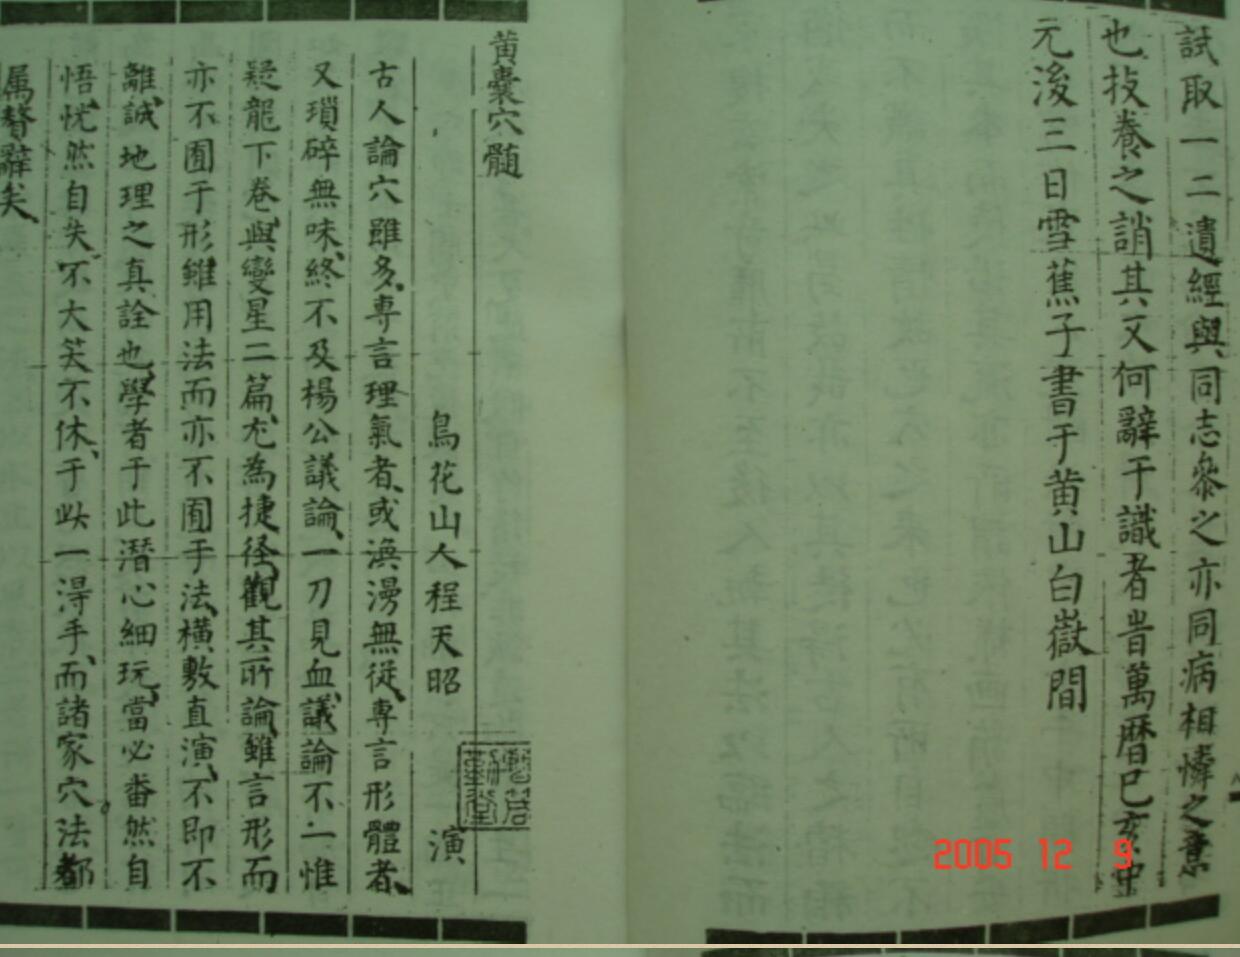 試取一二遺經與同志參之亦同病相憐之意
也技養之誚其又何辭于識者昔萬曆已亥中
元後三日雪蕉子書于黃山白嶽間
黃囊穴髓
鳥花山人程天昭 演
古人論穴雖多專言理氣者或渙漫無從專言形體者
又瑣碎無味終不及楊公議論一刀見血議論不一惟
疑龍下卷與變星二篇尤為捷径觀其所論雖言形而
亦不囿于形雖用法而亦不囿手法橫敷直演不即不
離誠地理之真詮也學者于此潛心細玩當必番然自
悟恍然自失不大笑不休于此一淂手而諸家穴法都
属聱辭矣
2005 12 9